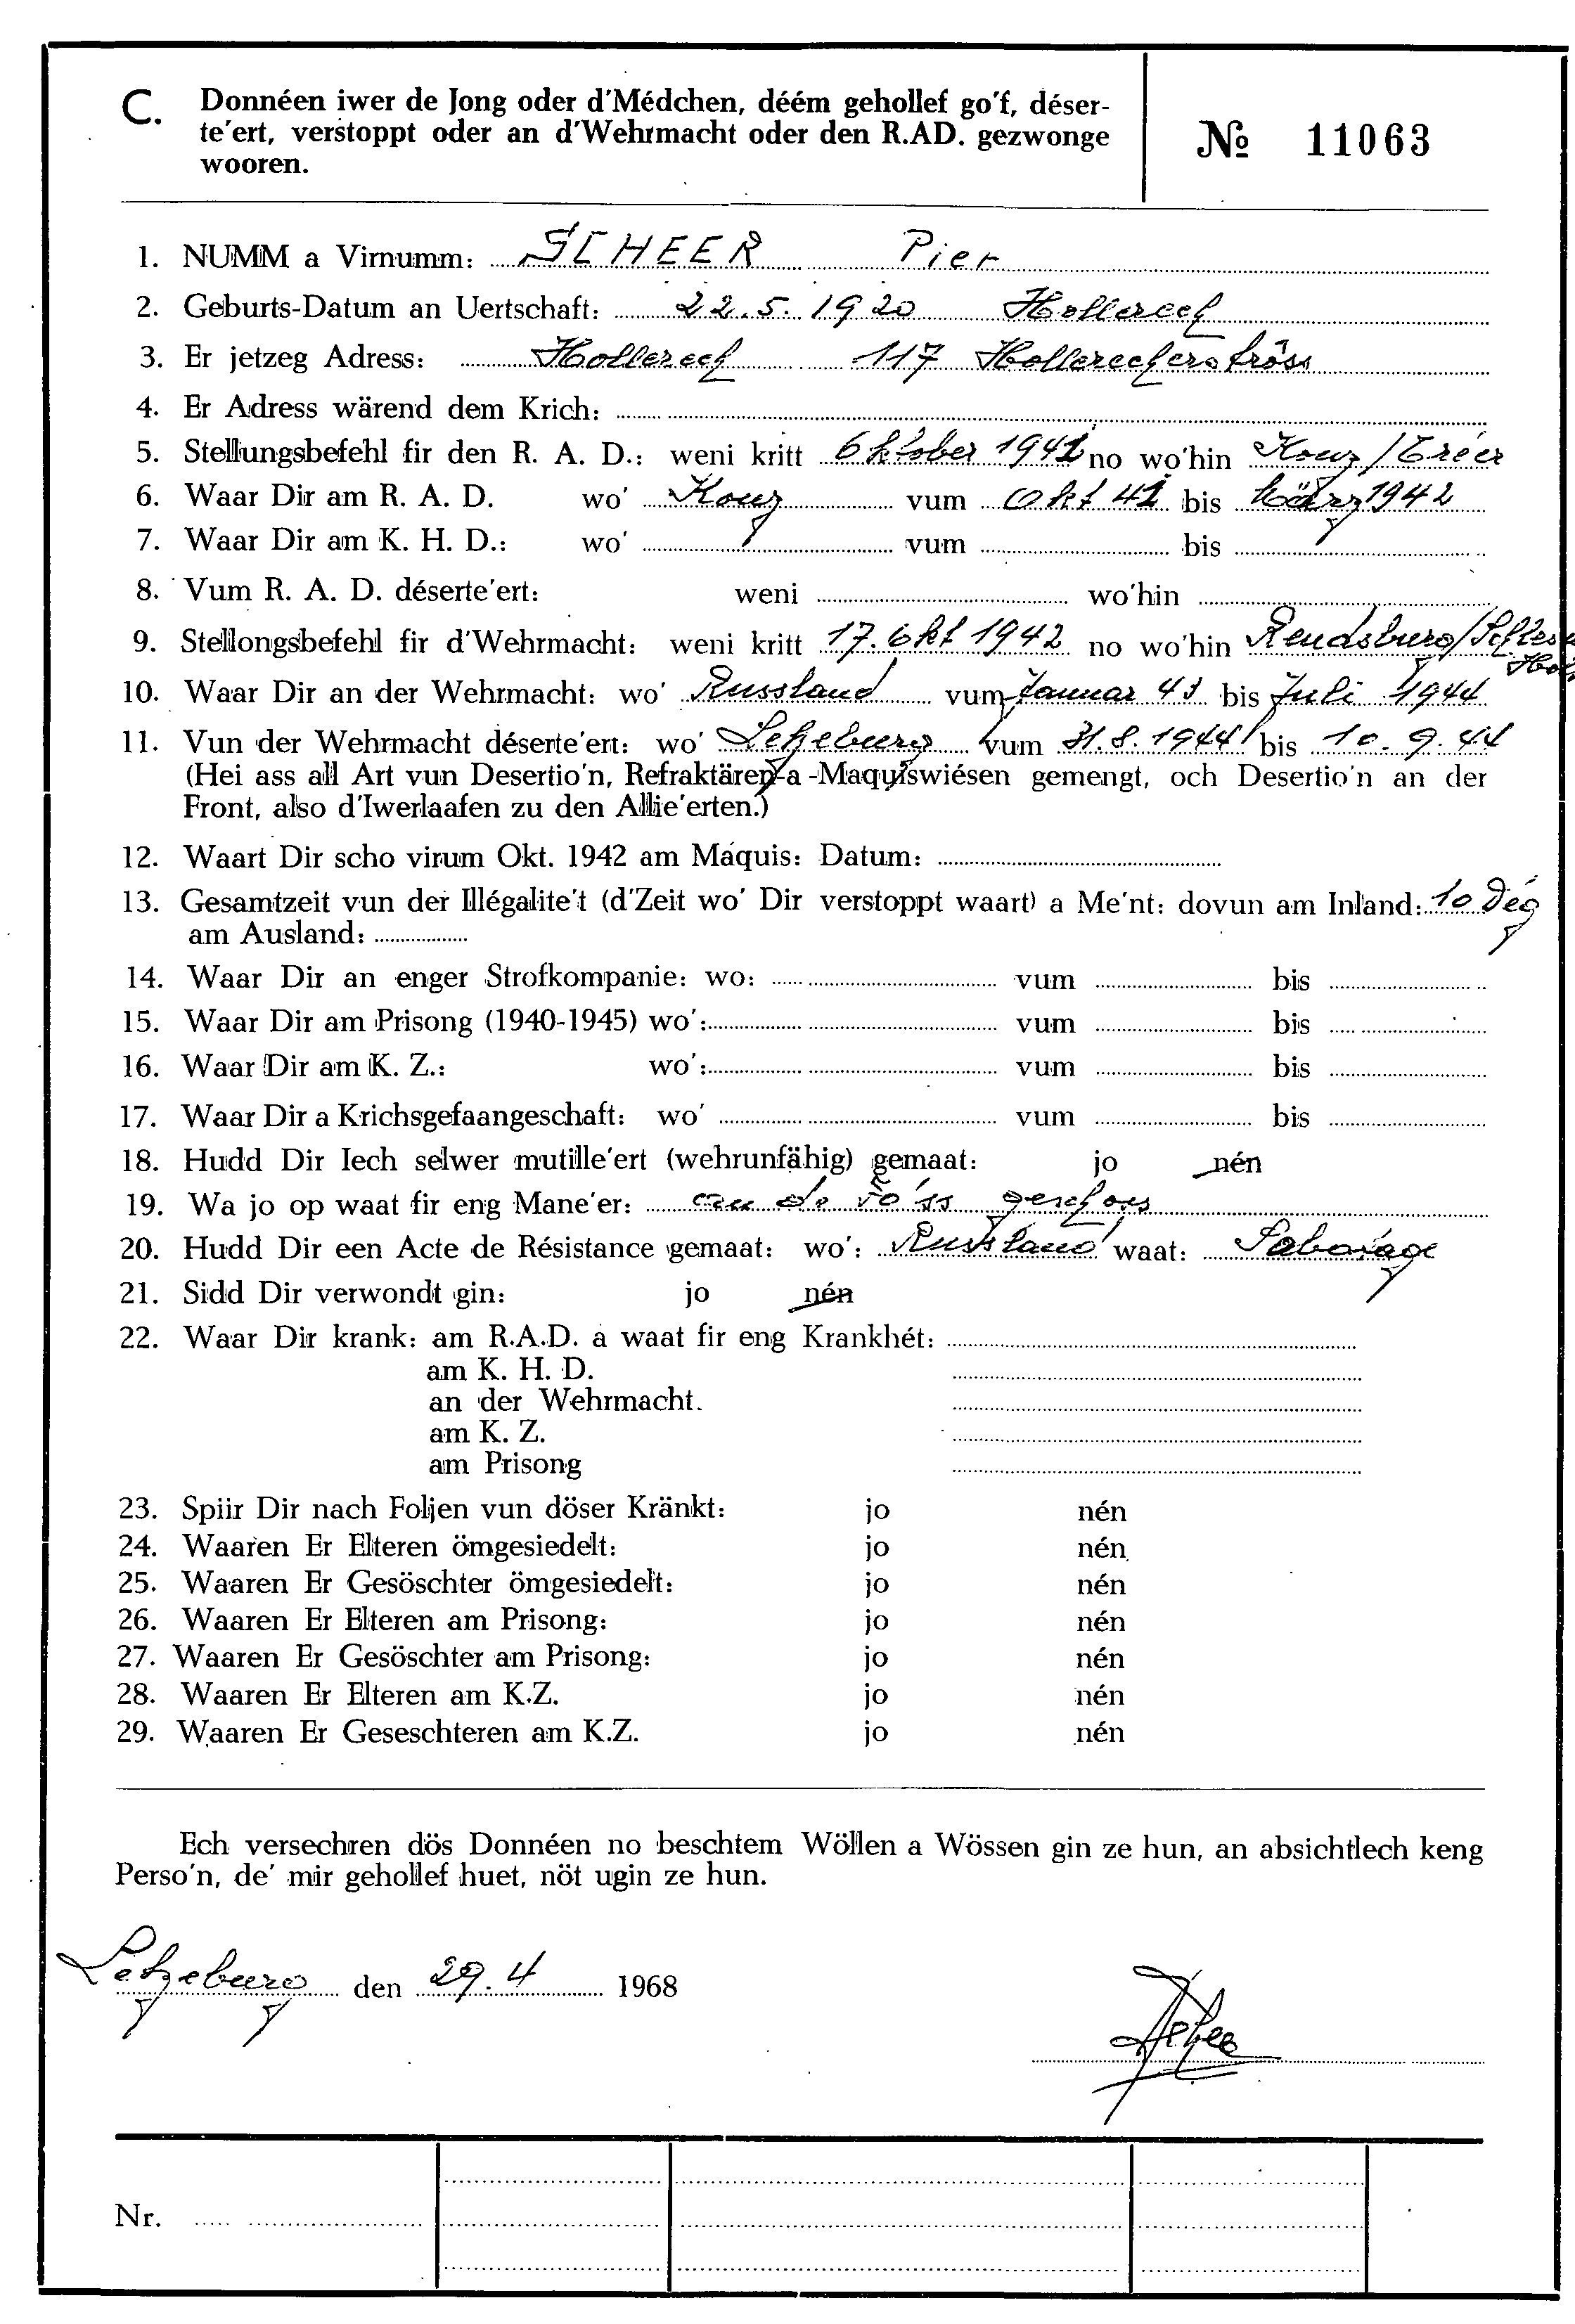 C. Donnéen iwer de Jong oder d'Médchen, déém gehollef go'f, déser-
te'ert, verstoppt oder an d'Wehrmacht oder den R.AD. gezwonge
wooren.
№ 11063
1. NUMM a Virnumm: SCHEER Pier
2. Geburts-Datum an Uertschaft: 22.5.1920 Hollerech
3. Er jetzeg Adress: Hollerech 117 Hollerecherströss
4. Er Adress wärend dem Krich:
5. Stellungsbefehl fir den R. A. D.: weni kritt Oktober 1941 no wo'hin Konz/Tréer
6. Waar Dir am R. A. D. wo' Konz vum Okt 41 bis März 1942
7. Waar Dir am K. H. D.: wo' vum bis
8. Vum R. A. D. déserte'ert: weni wo'hin
9. Stellongsbefehl fir d'Wehrmacht: weni kritt 17. Okt 1942 no wo'hin Rendsburg/
10. Waar Dir an der Wehrmacht: wo' Russland vum Januar 43 bis Juli 1944
11. Vun der Wehrmacht déserte'ert: wo' Letzeburg vum 31.8.1944 bis 10.9.44
(Hei ass all Art vun Desertio'n, Refraktären-a -Maquiswiésen gemengt, och Desertio'n an der
Front, also d'Iwerlaafen zu den Allie'erten.)
12. Waart Dir scho virum Okt. 1942 am Maquis: Datum:
13. Gesamtzeit vun der Illégalite't (d'Zeit wo' Dir verstoppt waart) a Me'nt: dovun am Inland: 10 Dég
am Ausland:
14. Waar Dir an enger Strofkompanie: wo: vum bis
15. Waar Dir am Prisong (1940-1945) wo': vum bis
16. Waar Dir am K. Z.: wo': vum bis
17. Waar Dir a Krichsgefaangeschaft: wo' vum bis
18. Hudd Dir Iech selwer mutille'ert (wehrunfähig) gemaat: jo nén
19. Wa jo op waat fir eng Mane'er: an de Fo'ss geschoss
20. Hudd Dir een Acte de Résistance gemaat: wo': Russland waat: Sabotage
21. Sidd Dir verwondt gin: jo nén
22. Waar Dir krank: am R.A.D. a waat fir eng Krankhét:
am K. H. D.
an der Wehrmacht.
am K. Z.
am Prisong
23. Spiir Dir nach Foljen vun döser Kränkt: jo nén
24. Waaren Er Elteren ömgesiedelt: jo nén
25. Waaren Er Gesöschter ömgesiedelt: jo nén
26. Waaren Er Elteren am Prisong: jo nén
27. Waaren Er Gesöschter am Prisong: jo nén
28. Waaren Er Elteren am K.Z. jo nén
29. Waaren Er Geseschteren am K.Z. jo nén
Ech versechren dös Donnéen no beschtem Wöllen a Wössen gin ze hun, an absichtlech keng
Perso'n, de' mir gehollef huet, nöt ugin ze hun.
Letzeburg den 29.4 1968
Nr.